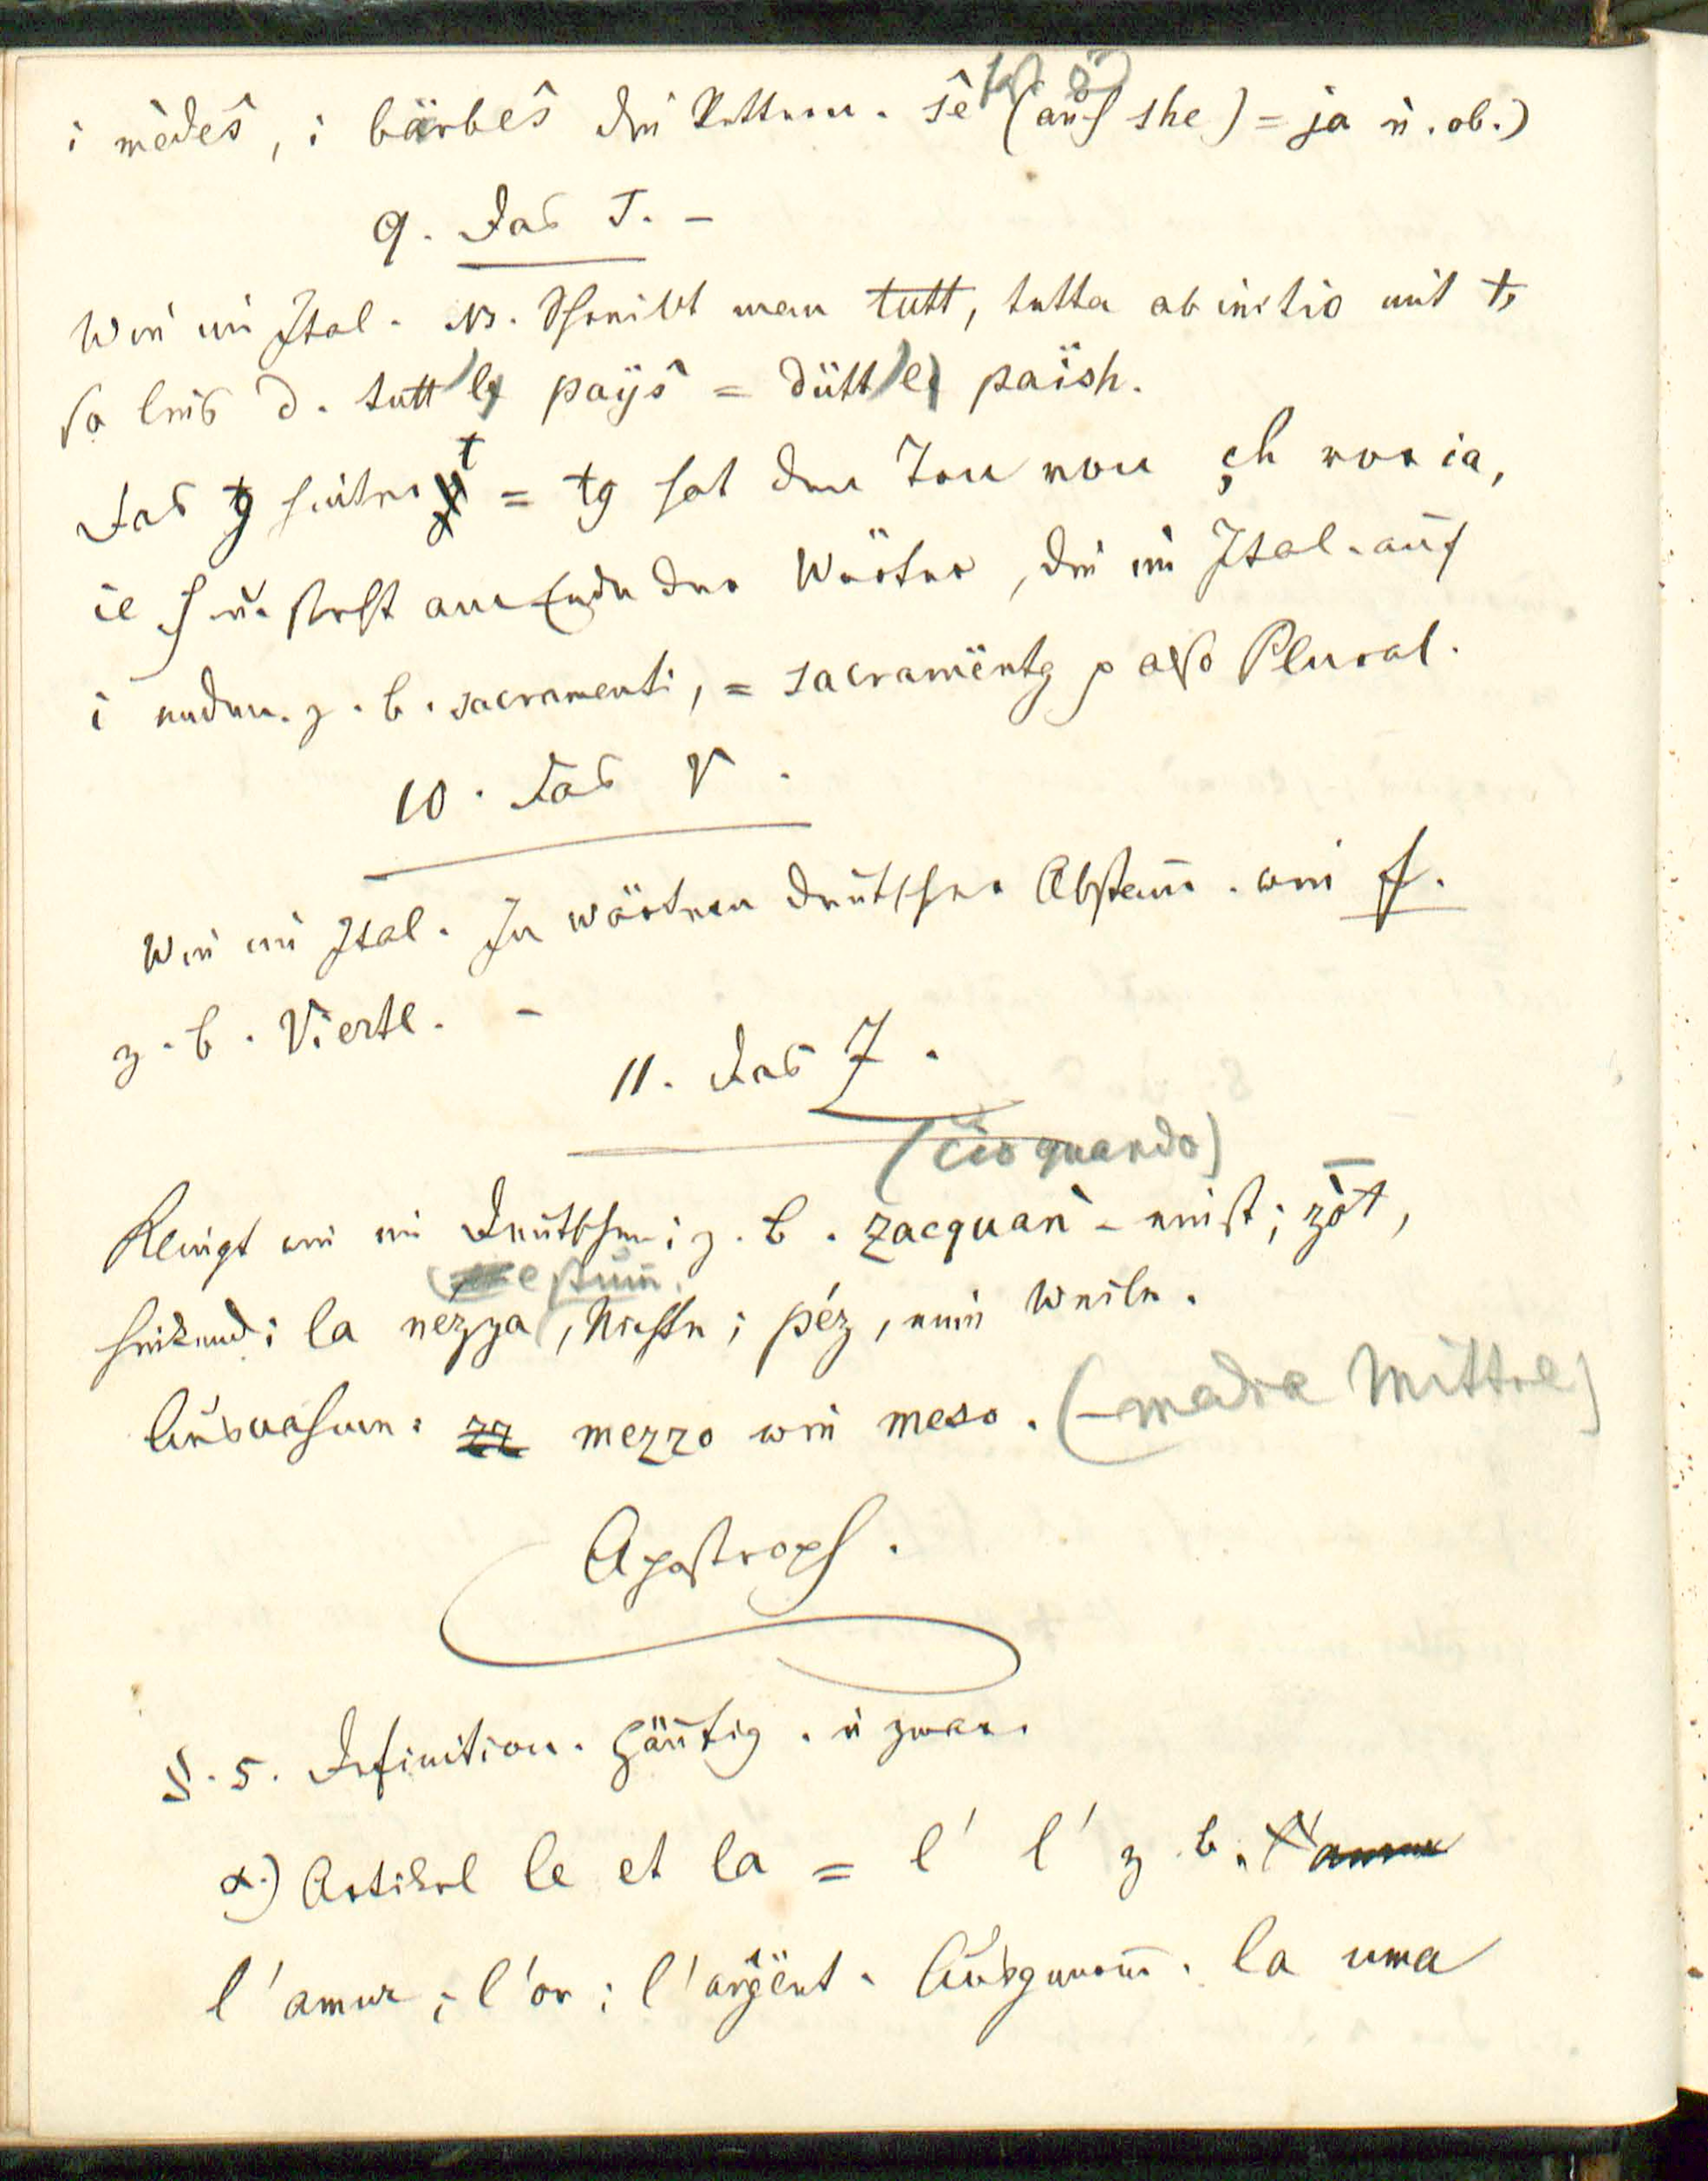 i mèdeŝ, i bärbeŝ die Vettern. sê (auch she) = ja u. ob.)
9. Das T. –
Wie im Ital. NB. Schreibt man tutt, tutta ab initio mit t,
so lies d. tutt le paÿŝ = dütt le païsh.
Das g hinter t = tg hat den Ton von ch vor ia,
ie u. steht am Ende der Wörter, die im Ital. auf
i enden. z. b. sacramenti, = sacramëntg also Plural.
10. Das V.
Wie im Ital. In Wörtern deutscher Abstam̄. wie f.
z. b. Viertl. –
11. Das Z.
(cio quando)
Klingt wie im Deutschen; z. b. zacquan – einst; zòt,
hinkend; la nezza, Nichte; péz, eine Weile.
Ausnahme: mezzo wie meso. (– media Mittel)
Apostroph.
§. 5. Definition. Häufig. u zwar.
α.) Artikel le et la = l' l' z. b.
l'amur; l'or; l'arg̈ënt. Ausgenom̄. la uma